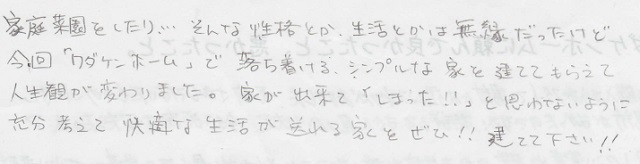 家庭菜園をしたり… そんな性格とか、生活とかは無縁だったけど
今回「ワダケンホーム」で落ち着ける、シンプルな家を建ててもらえて
人生観が変わりました。家が出来て「しまった!!」と思わないように
充分考えて快適な生活が送れる家をぜひ!!建てて下さい!!